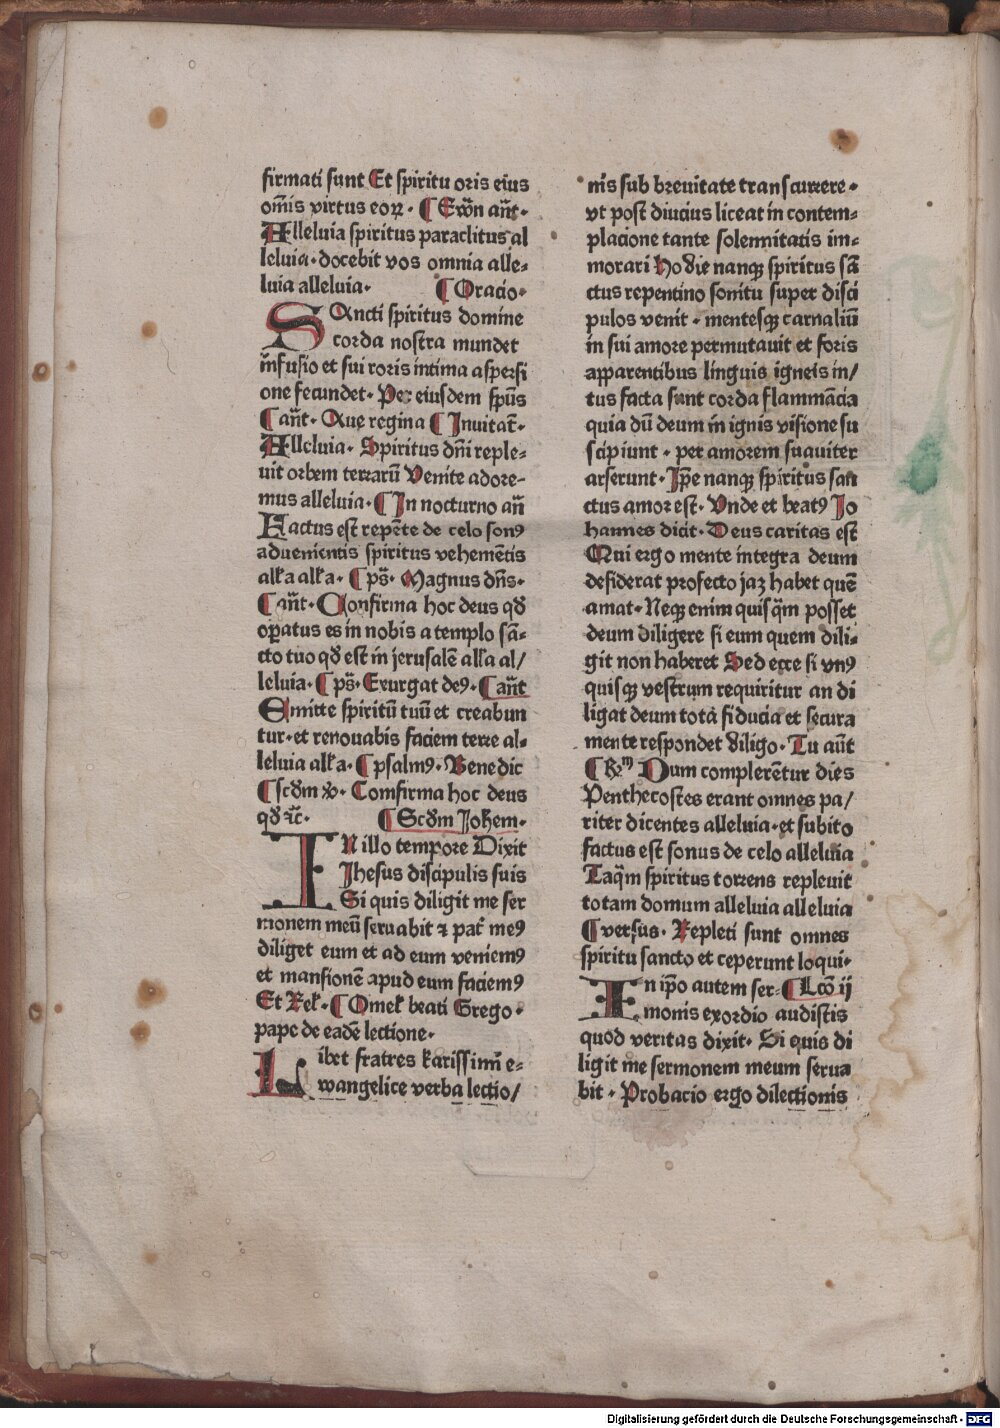 firmati sunt Et spiritu oris eius
om̄is virtus eoꝝ · ¶ Ewn̄ an̄t·
Alleluia spiritus paraclitus al
leluia· docebit vos omnia alle⸗
luia alleluia· ¶ Oracio·
SAncti spiritus domine
corda nostra mundet
infusio et sui roris intima aspersi
one fecundet· Per eiusdem spūs
¶ an̄t· Aue regina ¶ Inuitat̄·
Alleluia· Spiritus dn̄i reple⸗
uit orbem terrarū Venite adore⸗
mus alleluia· ¶ In nocturno an̄
Factus est repēte de celo sonꝰ
aduenientis spiritus vehemētis
alła alła· ¶ ps̄· Magnus dn̄s·
¶ an̄t· Confirma hoc deus qđ
oꝑatus es in nobis a templo sā⸗
cto tuo qđ est in jerusalē alła al/
leluia· ¶ ps̄· Exurgat deꝰ· ¶ an̄t
Emitte spiritū tuū et creabun
tur· et renouabis faciem terre al⸗
leluia alła· ¶ psalmꝰ· Benedic
¶ scđm xp̄· Comfirma hoc deus
qđ ꝛc̄· ¶ Scđm Johem·
IN illo tempore Dixit
Jhesus discipulis suis
Si quis diligit me ser
monem meū seruabit ⁊ pat̄ meꝰ
diliget eum et ad eum veniemꝰ
et mansionē apud eum faciemꝰ
Et Reł· ¶ Omeł beati Grego·
pape de eadē lectione·
Libet fratres karissimi e⸗
wangelice verba lectio/
nis sub breuitate transcurrere·
vt post diucius liceat in contem⸗
placione tante solennitatis im⸗
morari Hodie nanqꝫ spiritus sā
ctus repentino sonitu super disci
pulos venit · mentesqꝫ carnaliū
in sui amore permutauit et foris
apparentibus linguis igneis in/
tus facta sunt corda flammācia
quia dū deum in ignis visione su
scipiunt · per amorem suauiter
arserunt · Ip̄e nanqꝫ spiritus san
ctus amor est· Vnde et beatꝰ Jo
hannes dicit· Deus caritas est
Qui ergo mente integra deum
desiderat profecto jaꝫ habet quē
amat· Neqꝫ enim quisq̄m posset
deum diligere si eum quem dili⸗
git non haberet Sed ecce si vnꝰ
quisqꝫ vestrum requiritur an di
ligat deum tota fiducia et secura
mente respondet diligo· Tu aūt
¶ Rm Dum complerētur dies
Penthecostes erant omnes pa/
riter dicentes alleluia· et subito
factus est sonus de celo alleluia
Taq̄m spiritus torrens repleuit
totam domum alleluia alleluia
¶ versus· Repleti sunt omnes
spiritu sancto et ceperunt loqui·
In ip̄o autem ser⸗ ¶ Lcō ij
monis exordio audistis
quod veritas dixit· Si quis di
ligit me sermonem meum serua
bit · Probacio ergo dilectionis
Digitalisierung gefördert durch die Deutsche Forschungsgemeinschaft - DFG